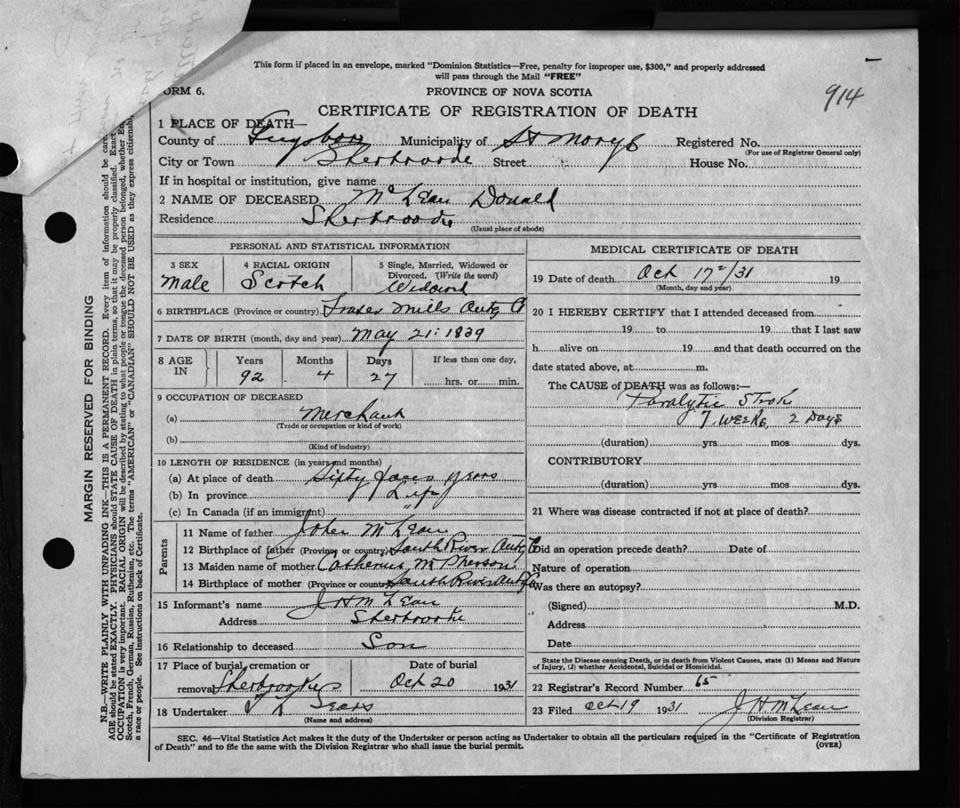 This form if placed in an envelope, marked "Dominion Statistics—Free, penalty for improper use, $300," and properly addressed
will pass through the Mail "FREE"
ORM 6.
PROVINCE OF NOVA SCOTIA
914
CERTIFICATE OF REGISTRATION OF DEATH
1 PLACE OF DEATH—
County of Guysboro Municipality of St Marys Registered No.
(For use of Registrar General only)
City or Town Sherbrooke Street House No.
If in hospital or institution, give name
2 NAME OF DECEASED McLean Donald
Residence Sherbrooke
(Usual place of abode)
PERSONAL AND STATISTICAL INFORMATION
3 SEX
Male
4 RACIAL ORIGIN
Scotch
5 Single, Married, Widowed or
Divorced. (Write the word)
Widowed
6 BIRTHPLACE (Province or country) Frases Mills Antg Co
7 DATE OF BIRTH (month, day and year) May 21: 1839
8 AGE IN
Years Months Days If less than one day,
92 4 27 hrs. or min.
9 OCCUPATION OF DECEASED
(a) Merchant
(Trade or occupation or kind of work)
(b)
(Kind of industry)
10 LENGTH OF RESIDENCE (in years and months)
(a) At place of death Sixty years
(b) In province Life
(c) In Canada (if an immigrant) "
Parents
11 Name of father John McLean
12 Birthplace of father (Province or country) South River Antg Co
13 Maiden name of mother Catherine McPherson
14 Birthplace of mother (Province or country) South River Antg Co
15 Informant's name J H McLean
Address Sherbrooke
16 Relationship to deceased Son
17 Place of burial, cremation or
removal Sherbrooke
Date of burial
Oct 20 1931
18 Undertaker T L Sears
(Name and address)
MEDICAL CERTIFICATE OF DEATH
19 Date of death Oct 17/31 19
(Month, day and year)
20 I HEREBY CERTIFY that I attended deceased from
19 to 19 that I last saw
h alive on 19 and that death occurred on the
date stated above, at m.
The CAUSE of DEATH was as follows:—
Paralytic Stroke
7 Weeks, 2 Days
(duration) yrs. mos. dys.
CONTRIBUTORY
(duration) yrs. mos. dys.
21 Where was disease contracted if not at place of death?
Did an operation precede death? Date of
Nature of operation
Was there an autopsy?
(Signed) M.D.
Address
Date
State the Disease causing Death, or in death from Violent Causes, state (1) Means and Nature
of Injury, (2) whether Accidental, Suicidal or Homicidal.
22 Registrar's Record Number 65
23 Filed Oct 19 1931 J H McLean
(Division Registrar)
SEC. 46—Vital Statistics Act makes it the duty of the Undertaker or person acting as Undertaker to obtain all the particulars required in the "Certificate of Registration
of Death" and to file the same with the Division Registrar who shall issue the burial permit.
(OVER)
MARGIN RESERVED FOR BINDING
N.B.—WRITE PLAINLY WITH UNFADING INK—THIS IS A PERMANENT RECORD. Every item of information should be care
AGE should be stated EXACTLY. PHYSICIANS should STATE CAUSE OF DEATH in plain terms, so that it may be properly classified. Exact
OCCUPATION is very important. RACIAL ORIGIN will be described by stating to what people or tongue the deceased person belonged, whether En
Scotch, French, German, Russian, Ruthenian, etc. The terms "AMERICAN" or "CANADIAN" SHOULD NOT BE USED as they express citizenship
a race or people. See instructions on back of Certificate.